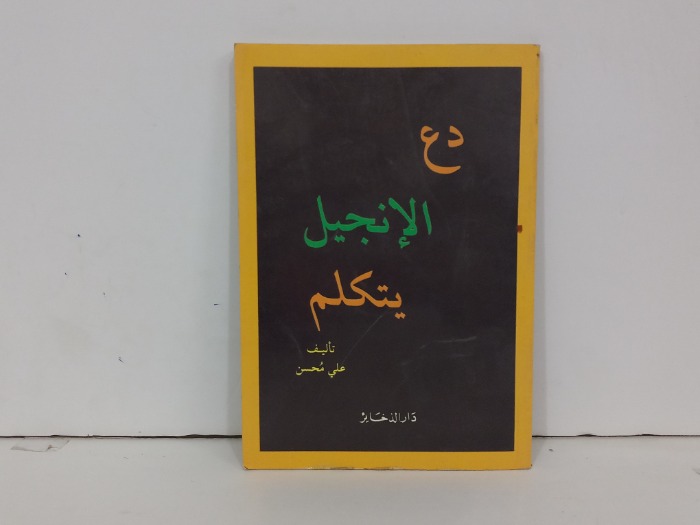 دع
الإنجيل
يتكلم
تأليف
علي مُحسن
دَار الذخَايْر